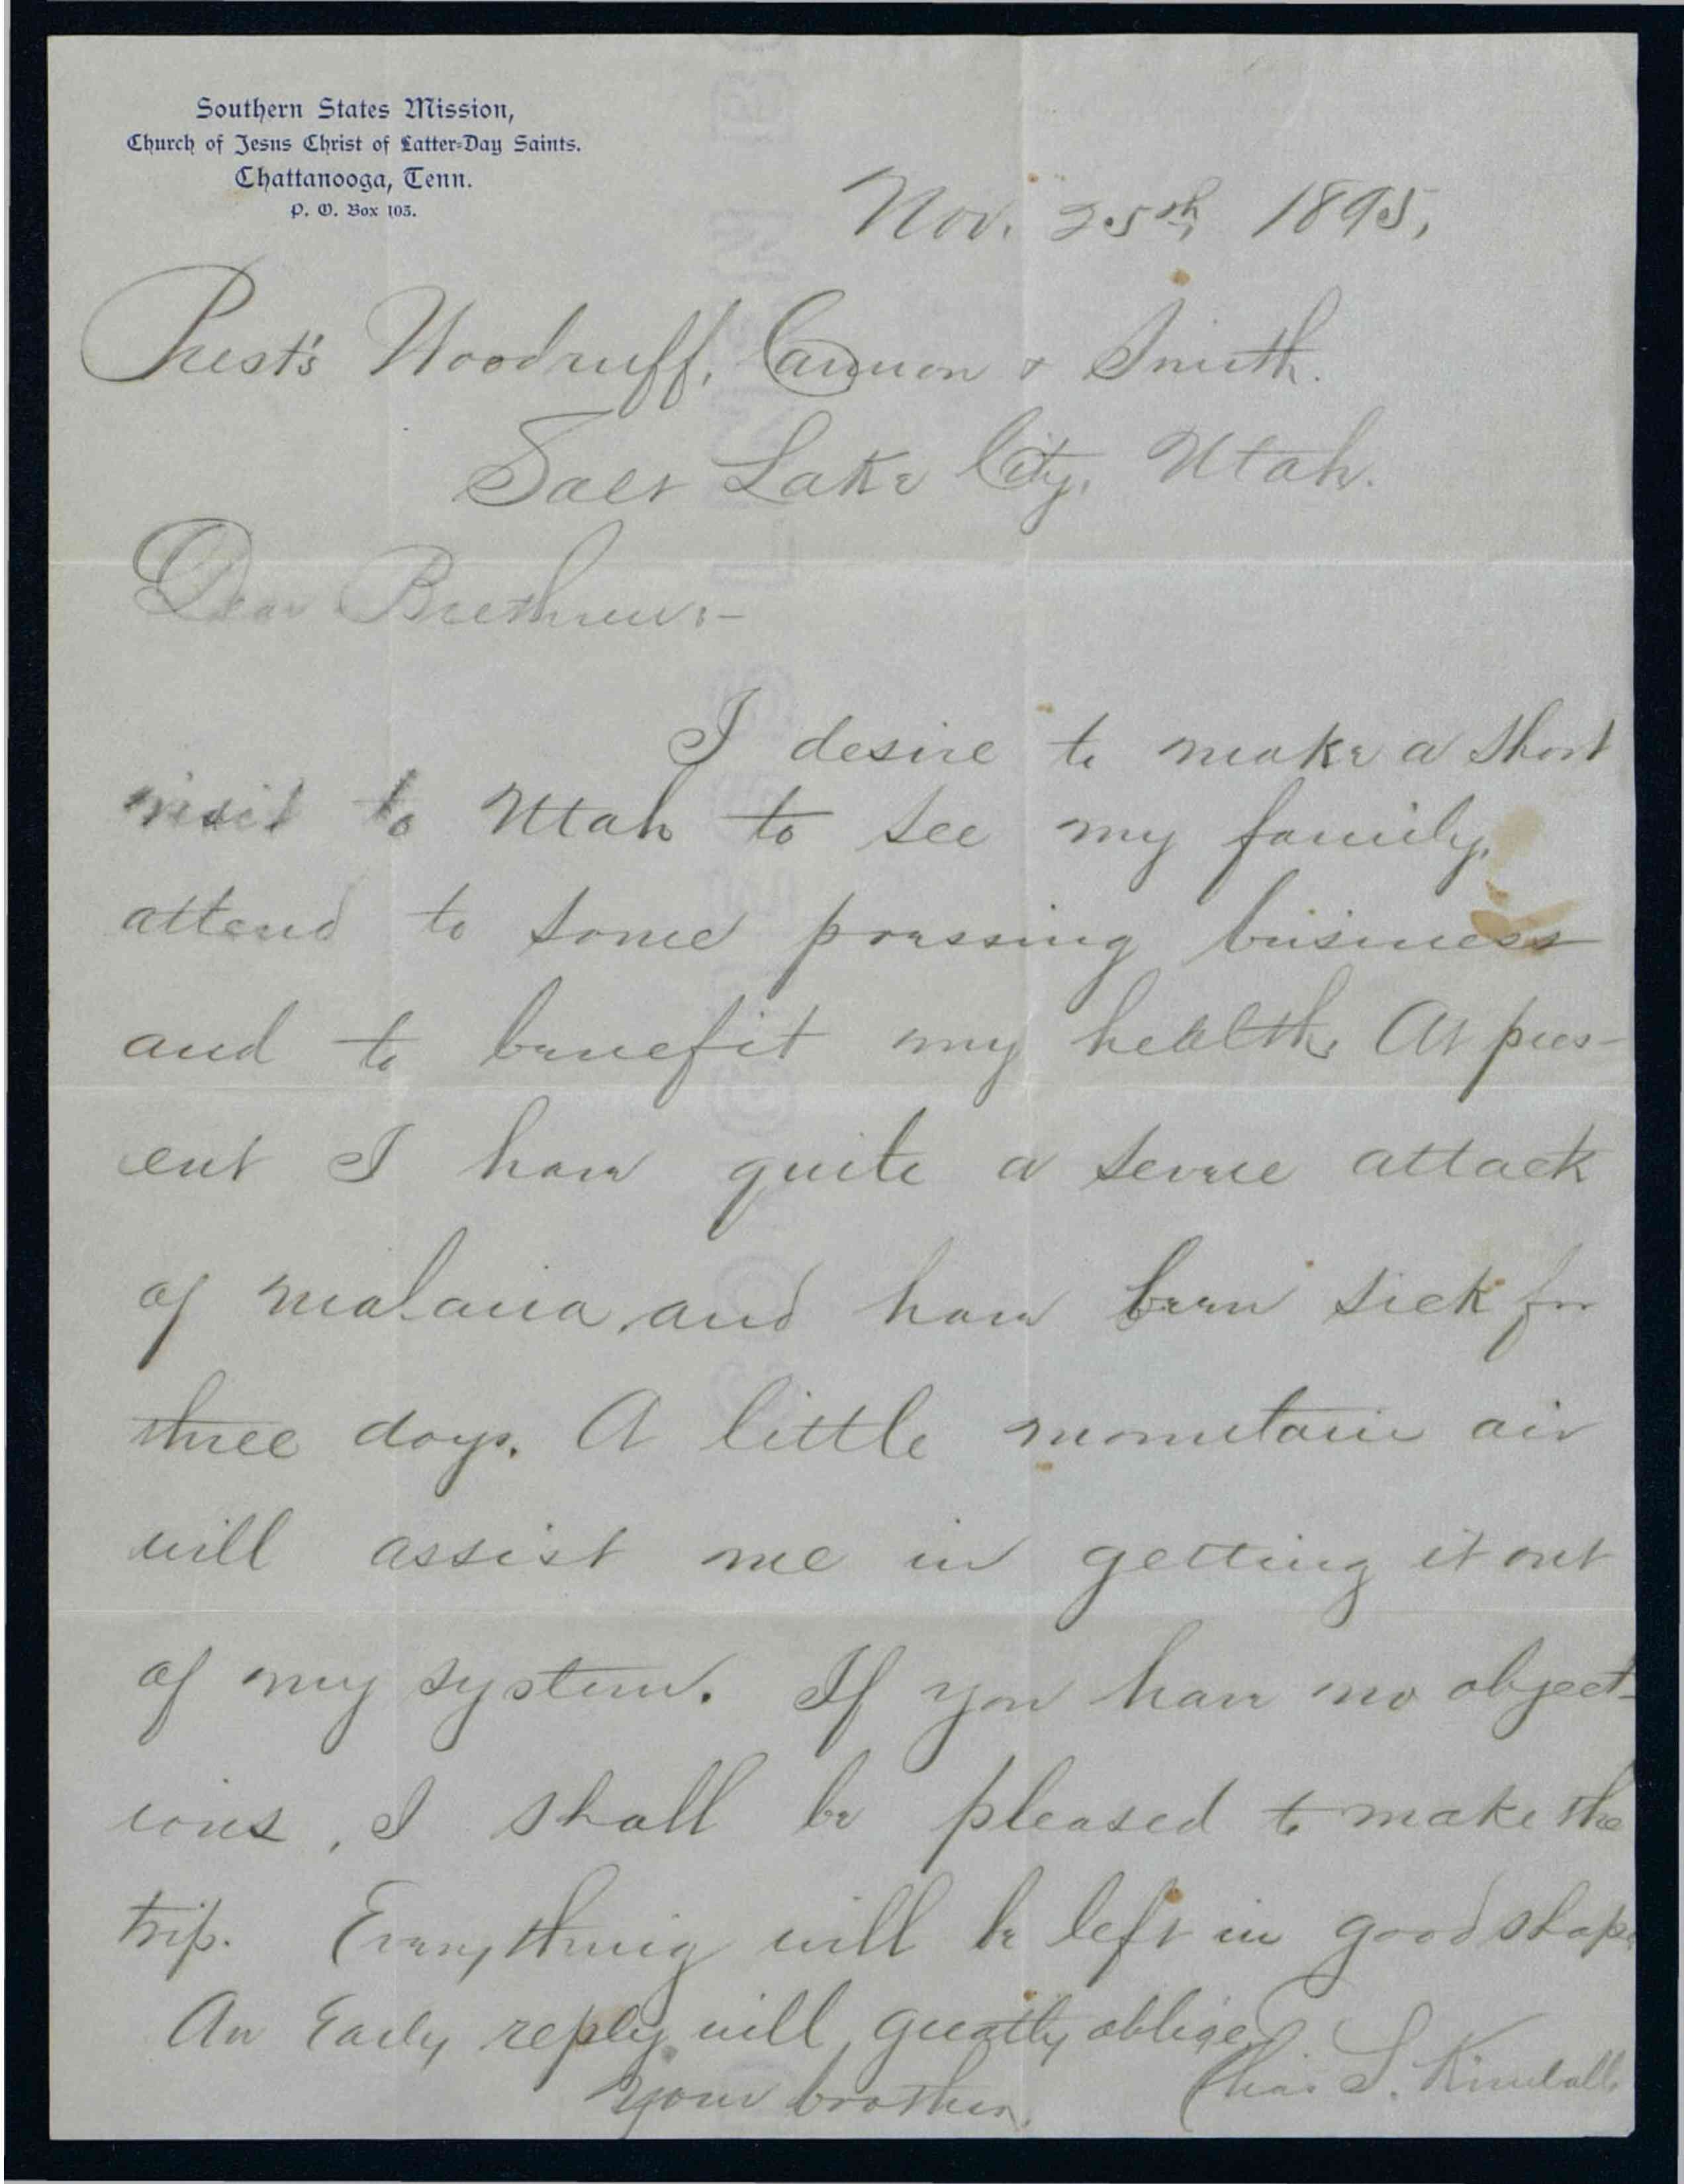 Southern States Mission,
Church of Jesus Christ of Latter-Day Saints.
Chattanooga, Tenn.
P. O. Box 103.
Nov. 25th, 1895,
Prest's Woodruff, Cannon & Smith.
Salt Lake City, Utah.
Dear Brethren:-
I desire to make a short
visit to Utah to see my family,
attend to some pressing business
and to benefit my health. At pres-
ent I have quite a severe attack
of malaria, and have been sick for
three days. A little mountain air
will assist me in getting it out
of my system. If you have no object-
ions, I shall be pleased to make the
trip. Everything will be left in good shape.
An early reply will greatly oblige,
Your brother,
Chas S. Kimball